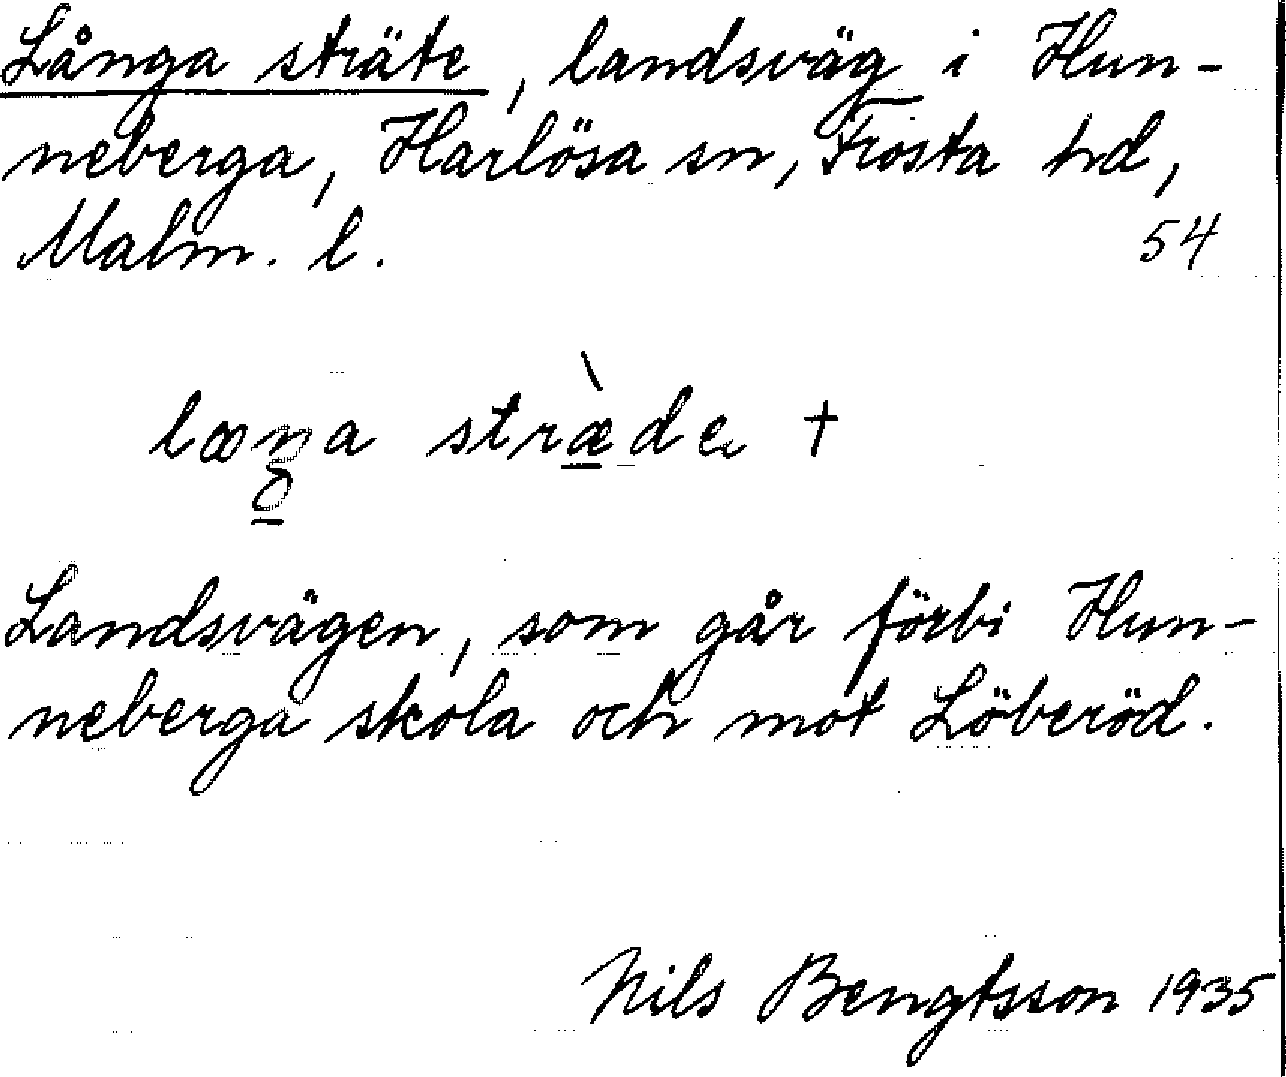 Långa sträte, landsväg i Hun-
neberga, Harlösa sn, Frosta hd,
Malm. l. 54
stræ̀de †
Landsvägen, som går förbi Hun-
neberga skola och mot Löberöd.
Nils Bengtsson 1935